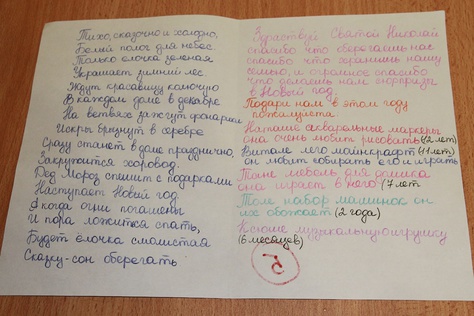 Тихо, сказочно и холодно,
Белый полог для небес.
Только ёлочка зеленая
Украшает зимний лес.
Ждут красавицу колючую
В каждом доме в декабре
На ветвях зажгут фонарики
Искры брызнут в серебре
Сразу станет в доме празднично,
Закружится хоровод.
Дед Мороз спешит с подарками
Наступает Новый год
А когда огни погашены
И пора ложиться спать,
Будет ёлочка смолистая
Сказку-сон оберегать
Здраствуй Святой Николай
спасибо что сберегаешь нас
спасибо что хранишь нашу
семью, и огромное спасибо
что делаешь нам сюрпризы
в Новый год.
Подари нам в этом году
пожалуйста:
Наташе акварельные маркеры
она очень любит рисовать (12 лет)
Витале лего майнкрафт (11 лет)
он любит собирать его и играть
Тане мебель для домика
она играет в него (7 лет
Толе набор машинок он
их обожает (2 года)
Ксюше музыкальную игрушку
(6 месяцев)